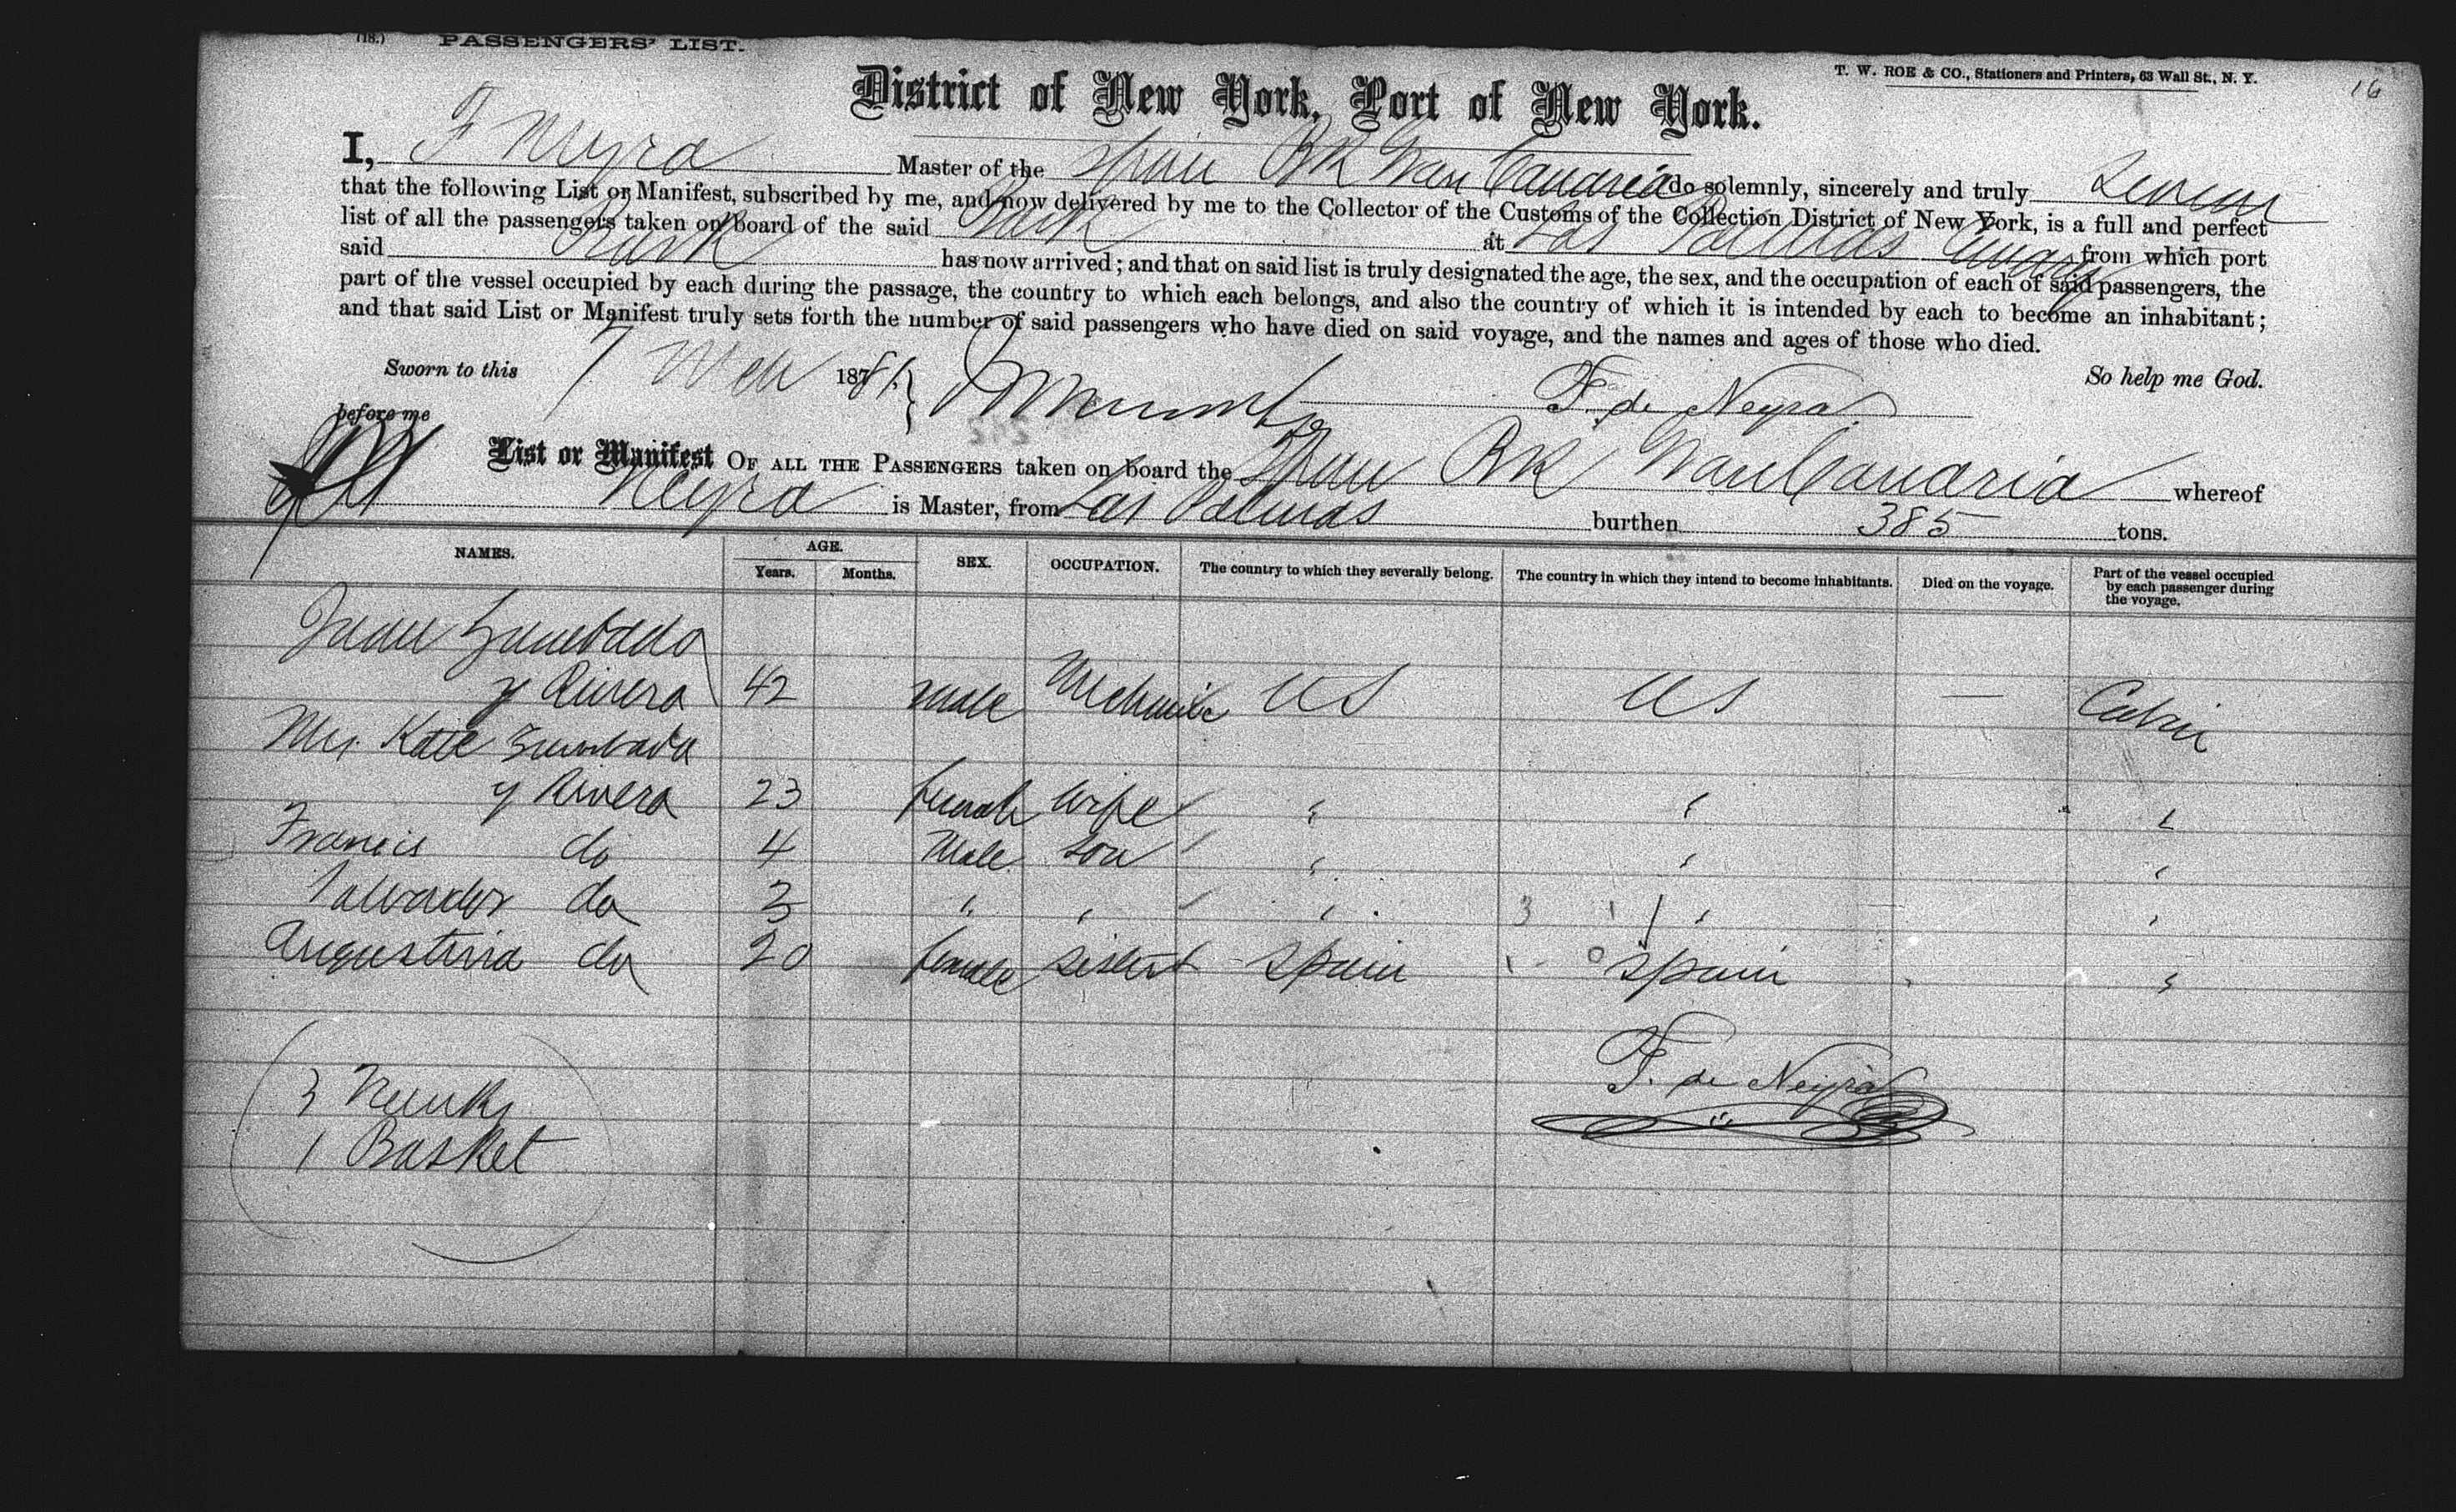 (18.) PASSENGERS' LIST.
T. W. ROE & CO., Stationers and Printers, 63 Wall St., N. Y.
16
District of New York, Port of New York.
I, F Neyra Master of the Span Bk Gran Canaria do solemnly, sincerely and truly
that the following List or Manifest, subscribed by me, and now delivered by me to the Collector of the Customs of the Collection District of New York, is a full and perfect
list of all the passengers taken on board of the said Bark at Las Palmas from which port
said Bark has now arrived; and that on said list is truly designated the age, the sex, and the occupation of each of said passengers, the
part of the vessel occupied by each during the passage, the country to which each belongs, and also the country of which it is intended by each to become an inhabitant;
and that said List or Manifest truly sets forth the number of said passengers who have died on said voyage, and the names and ages of those who died.
Sworn to this 7 Mch 1881 F. de Neyra So help me God.
before me
List or Manifest OF ALL THE PASSENGERS taken on board the Span Bk Gran Canaria whereof
Neyra is Master, from Las Palmas burthen 385 tons.
NAMES. AGE. Years. Months. SEX. OCCUPATION. The country to which they severally belong. The country in which they intend to become inhabitants. Died on the voyage. Part of the vessel occupied by each passenger during the voyage.
Juan Zumbado
y Rivera 42 male Mechanic US US — Cabin
Mrs. Kate Zumbado
y Rivera 23 female wife " " "
Francis do 4 Male son " " "
Salvador do 3 " " " " "
Augustina do 20 female sister Spain Spain "
F. de Neyra
3 Trunks
1 Basket